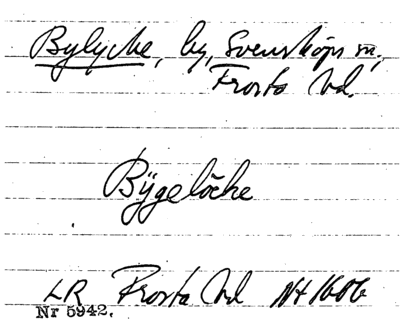 Bylycke, by, Svensköps sn,
Frosta hd.
Bÿgelöcke
LR Frosta hd Nt 1606
Nr 5942.